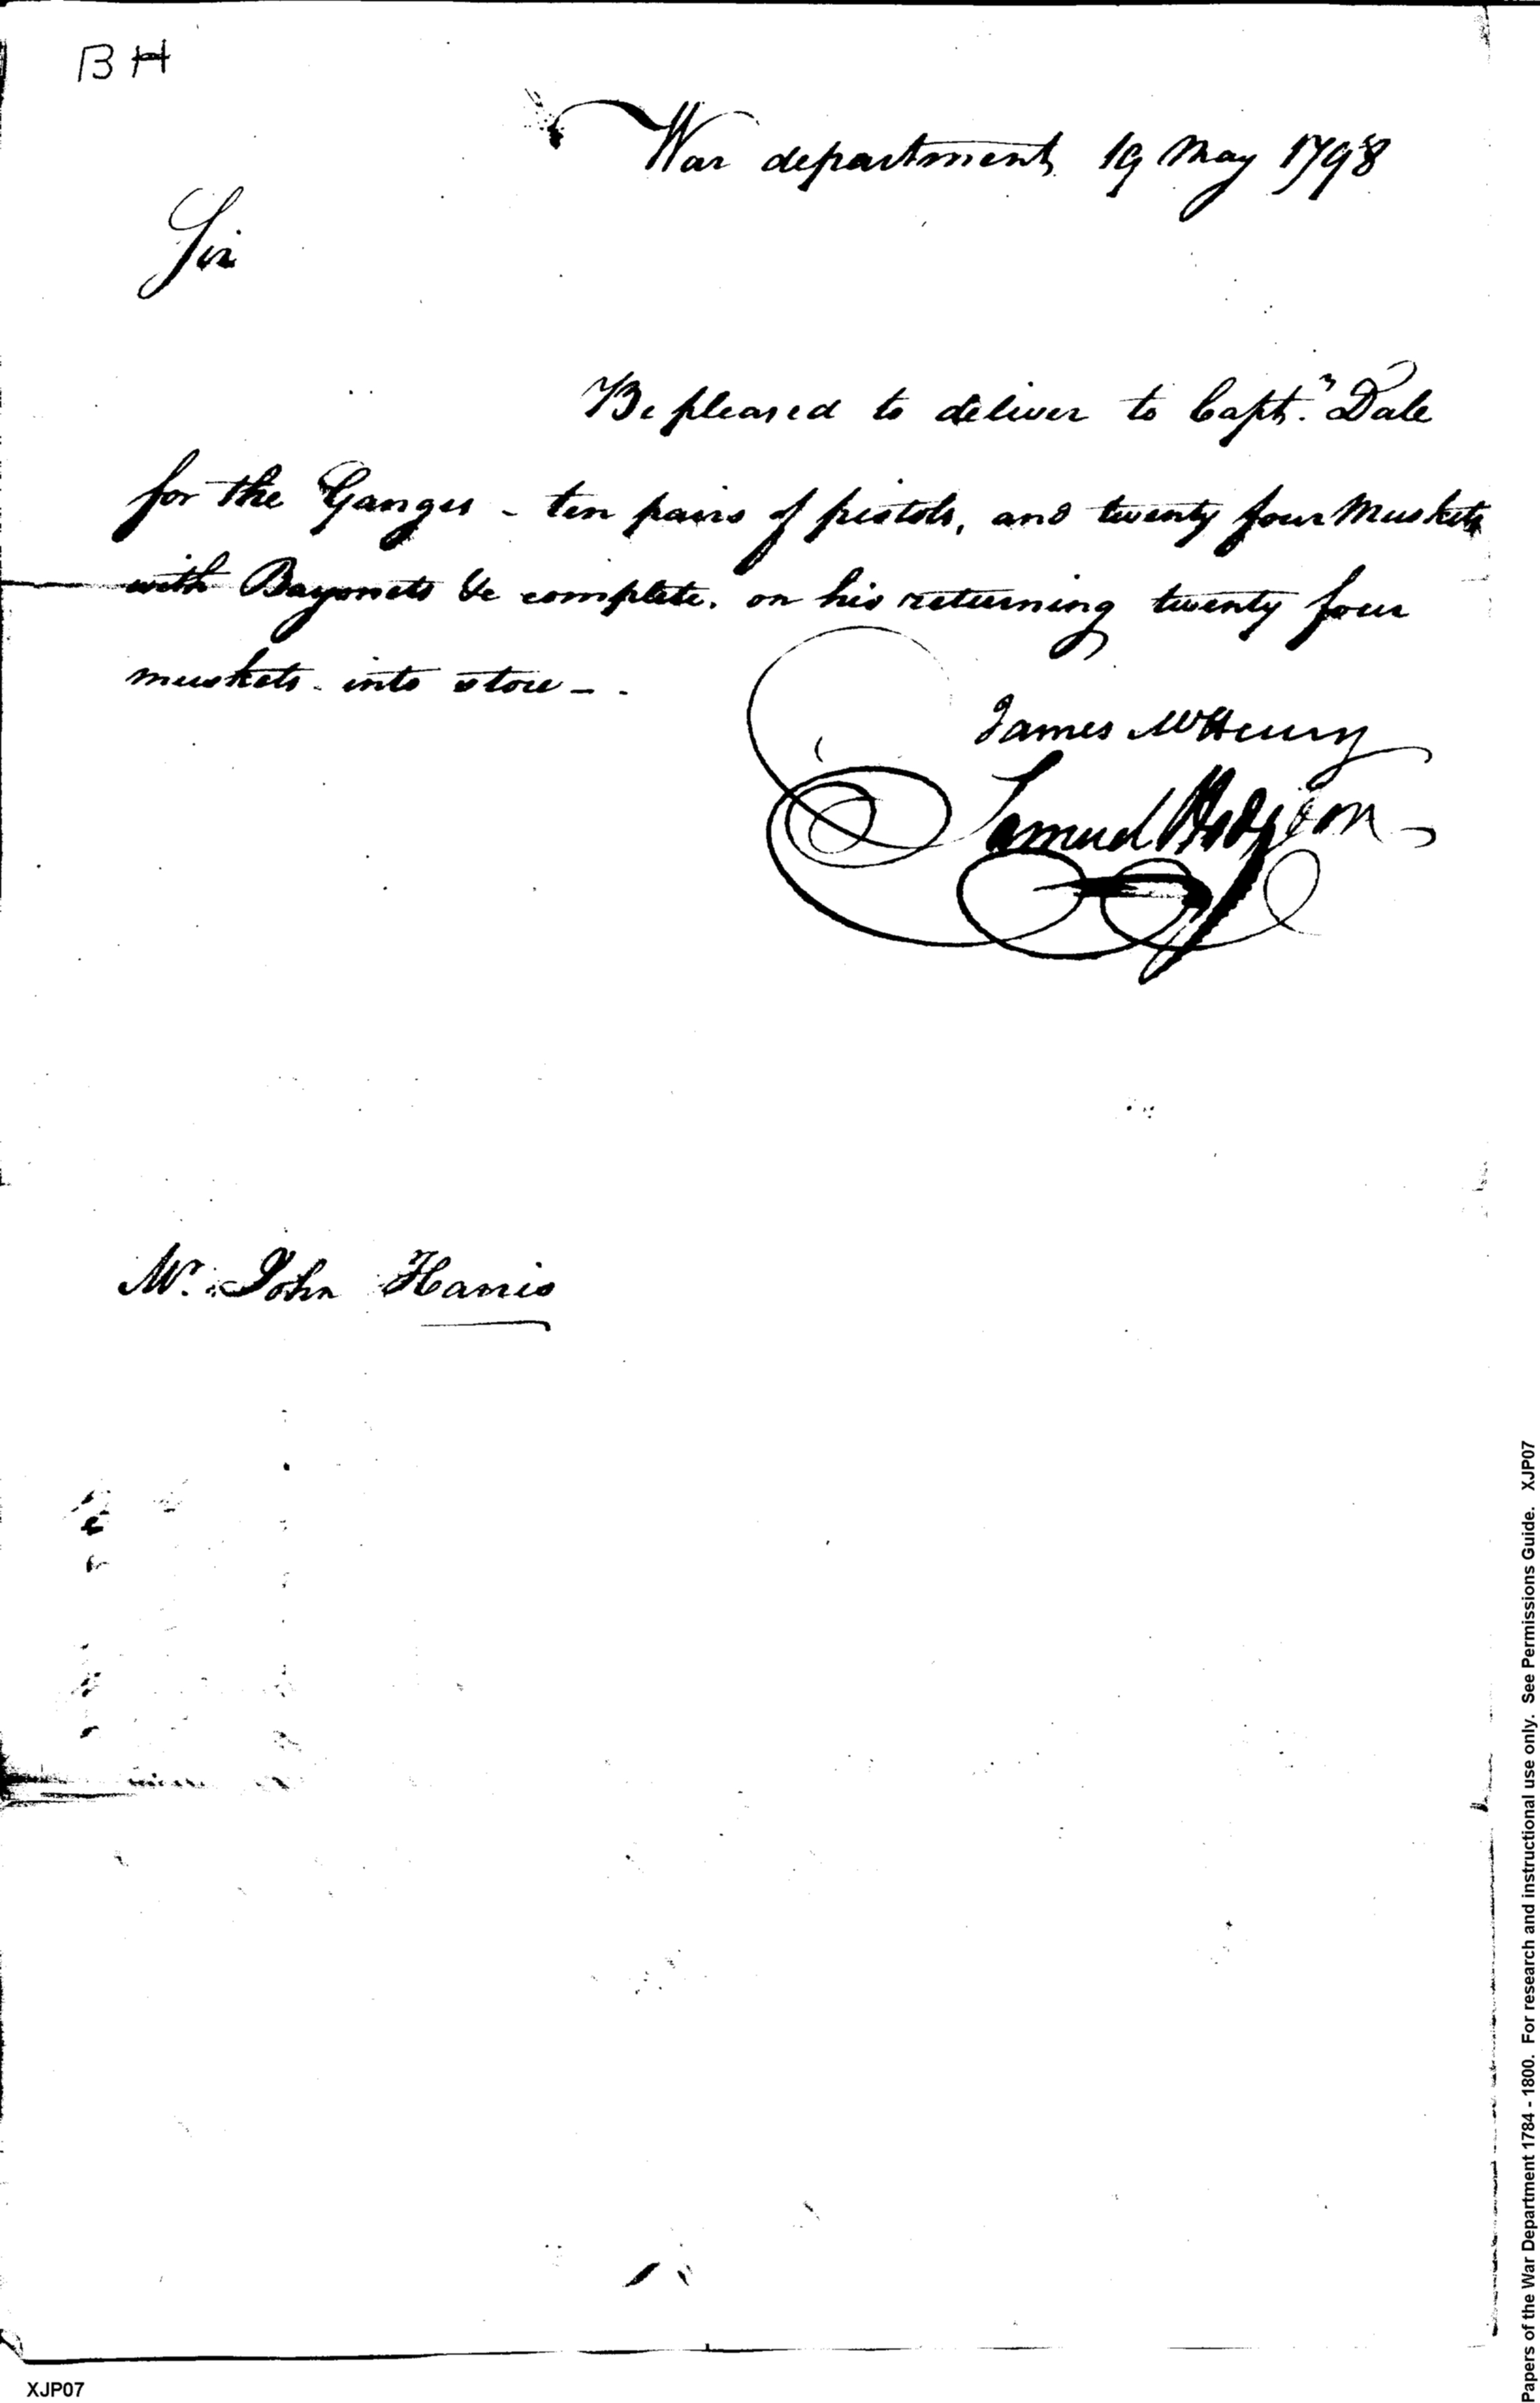 BH
War department 19 May 1798
Sir
Be pleased to deliver to Capt.n Dale
for the Ganges - ten pairs of pistols, and twenty four Muskets
with Bayonets &c complete. on his returning twenty four
muskets - into store - .
James McHenry
Samuel Hodgdon
Mr. John Harris
Papers of the War Department 1784 - 1800. For research and instructional use only. See Permissions Guide. XJP07
XJP07